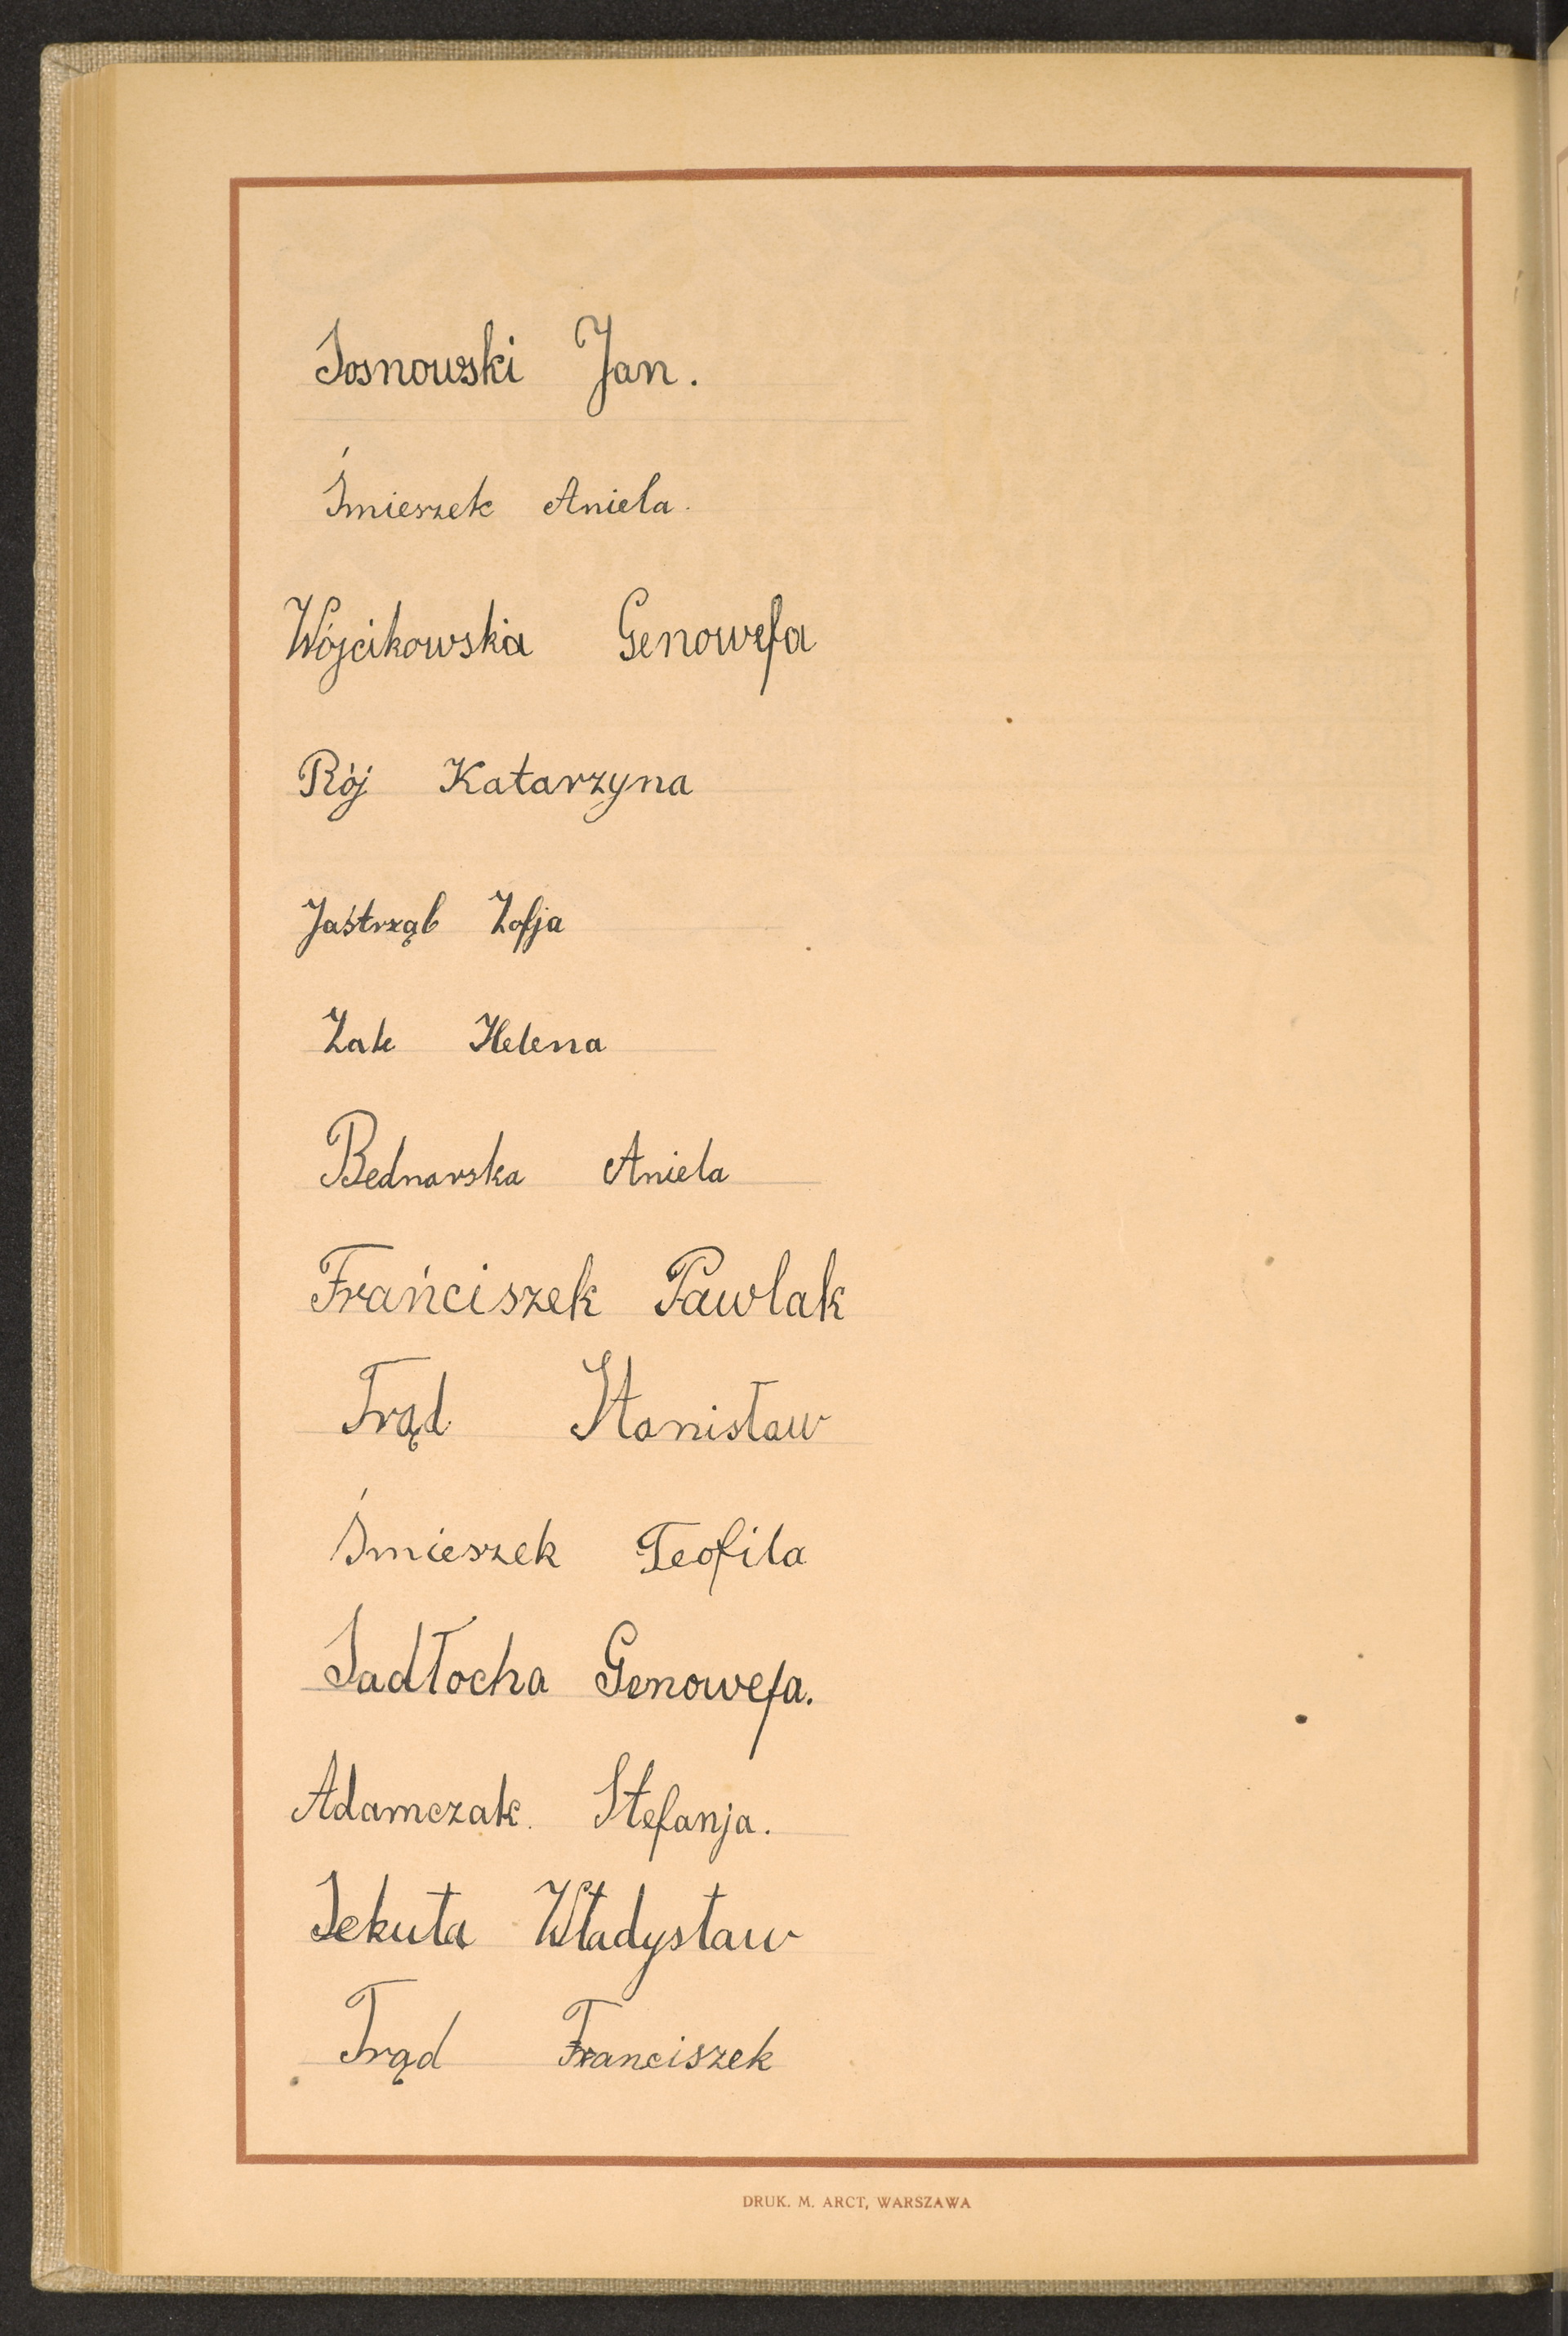 Sosnowski Jan.
Śmieszek Aniela.
Wójcikowska Genowefa
Rój Katarzyna
Jaśtrząb Zofja
Zak Helena
Bednarska Aniela
Frańciszek Pawlak
Trąd Stanisław
Śmieszek Teofila
Sadłocha Genowefa.
Adamczak. Stefanja.
Sekuła Władysław
Trąd Franciszek
DRUK. M. ARCT, WARSZAWA